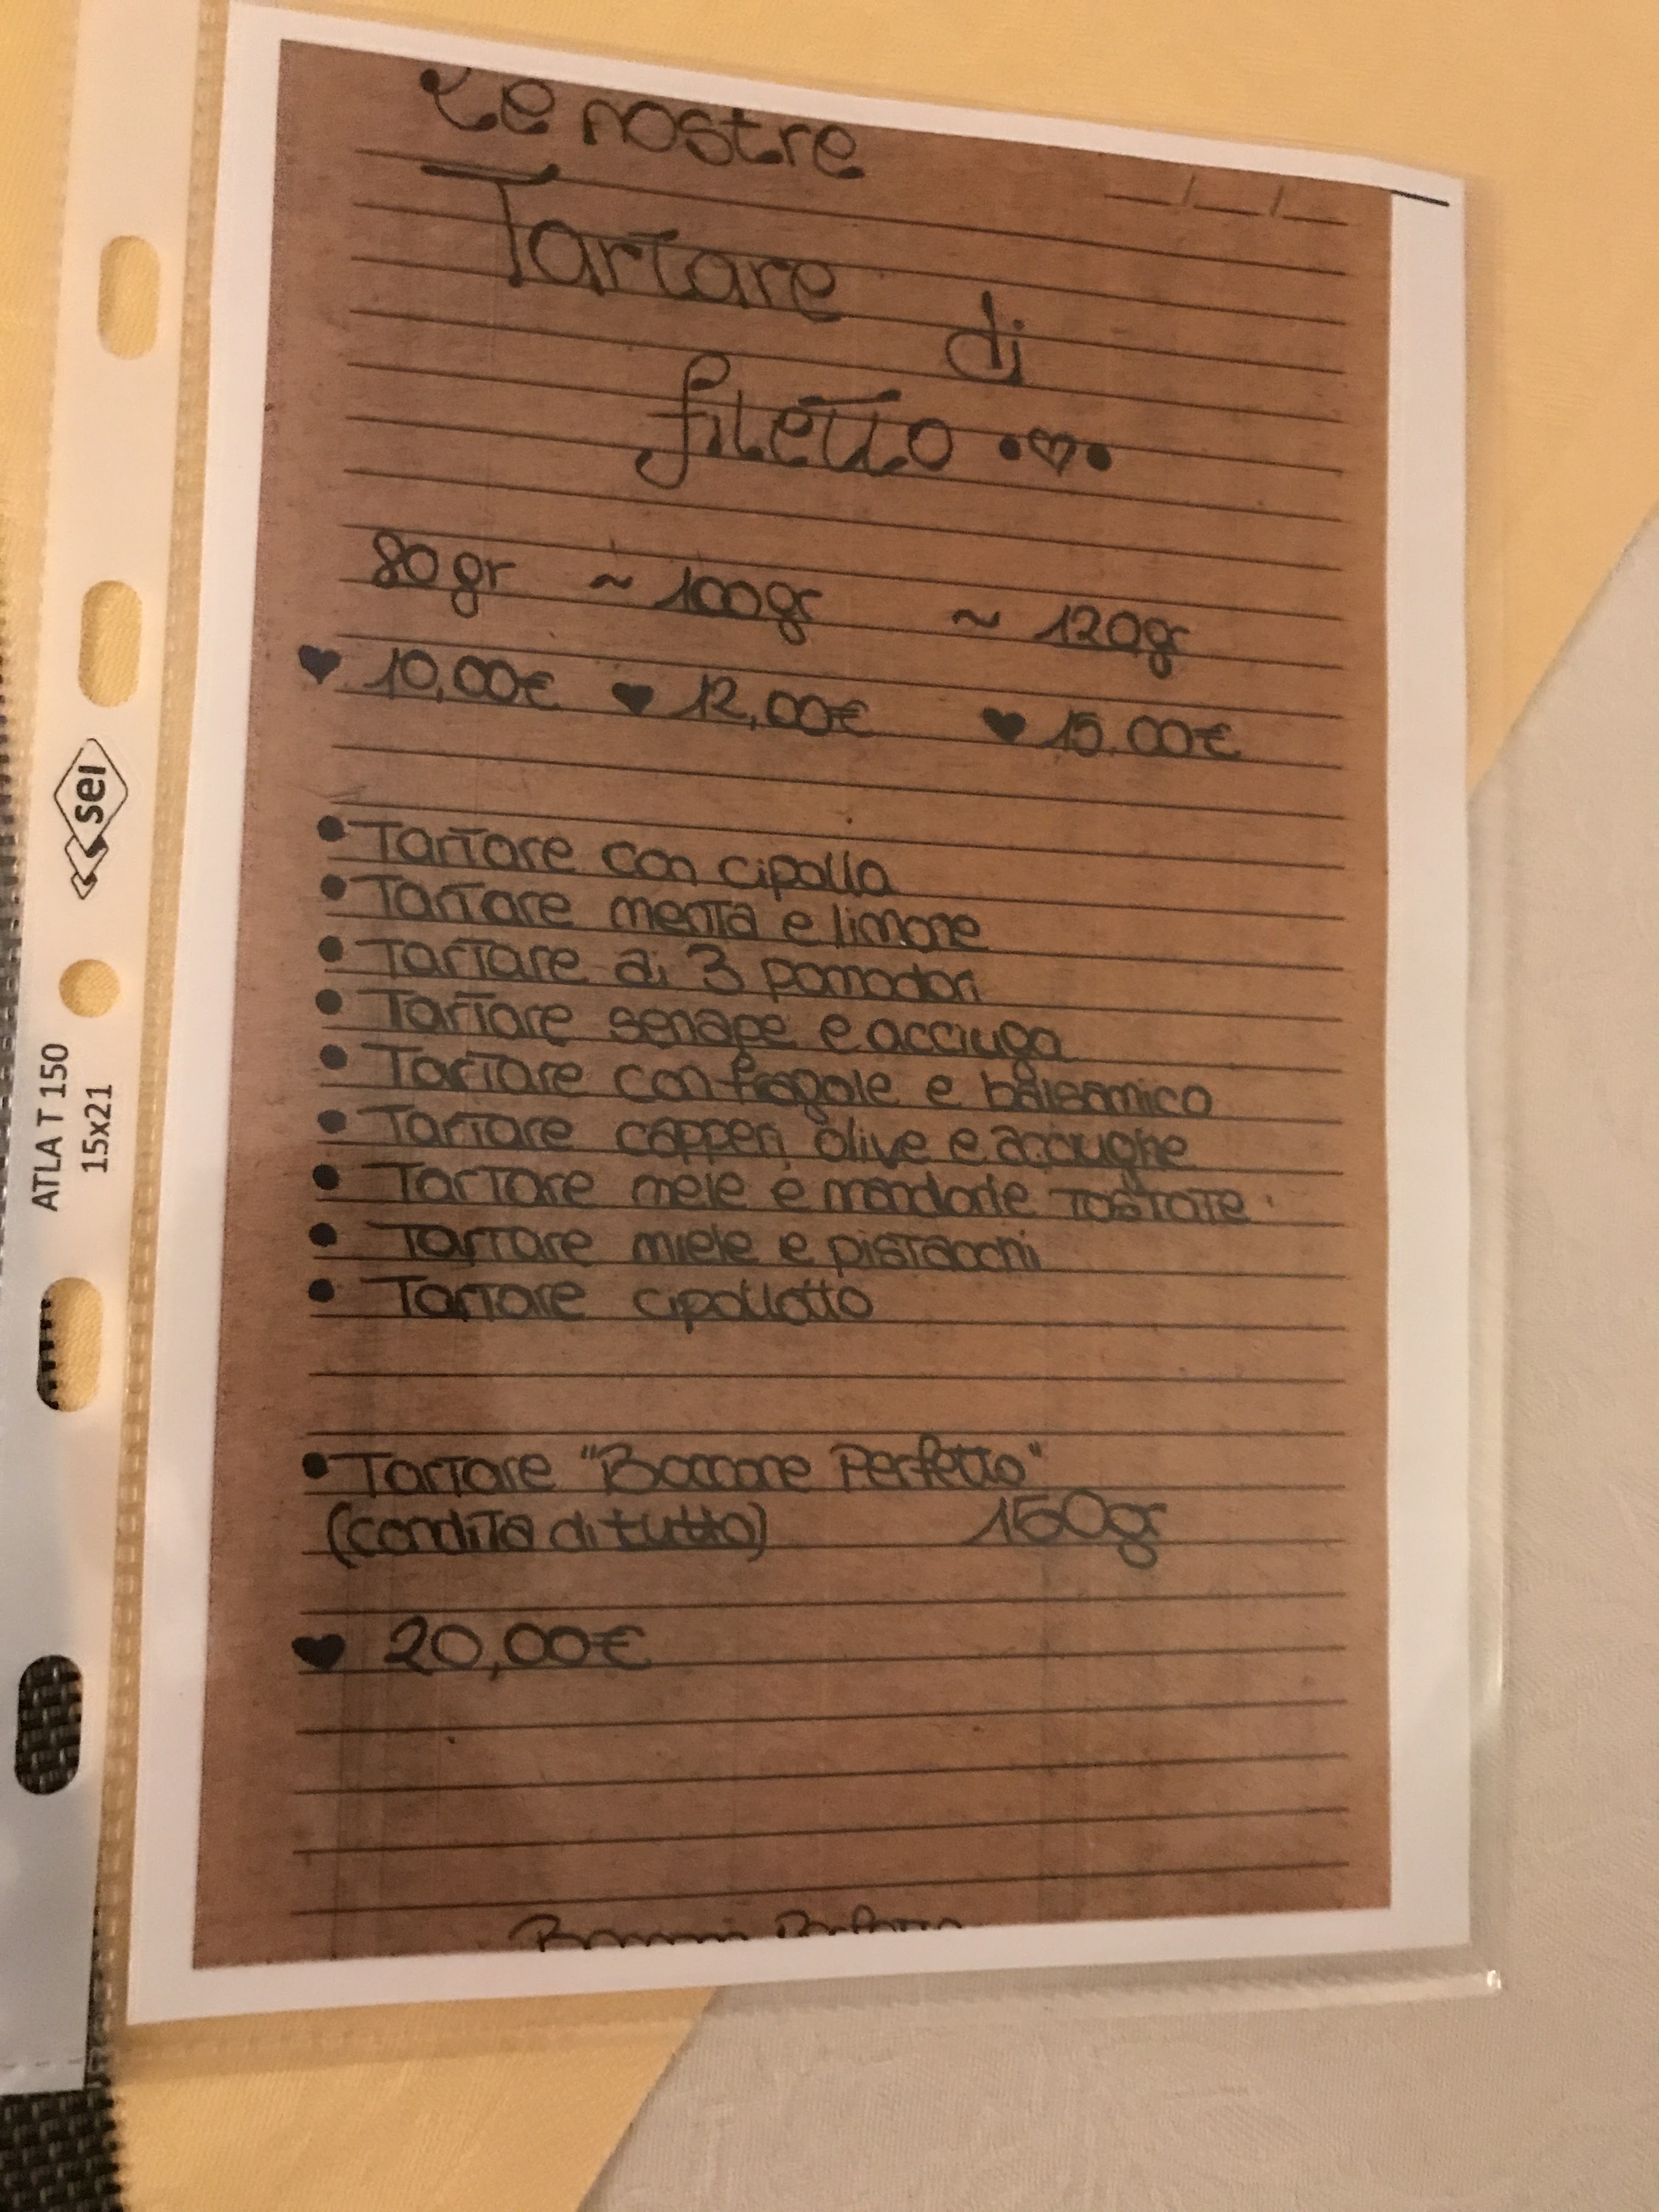 Le nostre
Tartare
di
filetto
80gr ~ 100gr ~ 120gr
♥ 10,00€ ♥ 12,00€ ♥ 15.00€
• Tartare con cipolla
• Tartare menta e limone
• Tartare di 3 pomodori
• Tartare senape e acciuga
• Tartare con fragole e balsamico
• Tartare capperi, olive e acciughe
• Tartare mele e mandorle tostate
• Tartare miele e pistacchi
• Tartare cipollotto
• Tartare "Boccone Perfetto"
(condita di tutto) 150gr
♥ 20,00€
sei
ATLA T 150
15x21